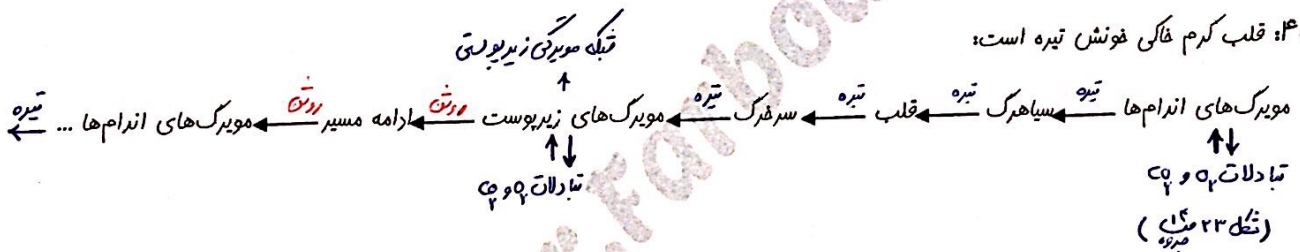 ۴: قلب کرم خاکی خونش تیره است:
شبکه مویرگی زیرپوستی
مویرگ‌های اندام‌ها تیره سیاهرگ تیره قلب تیره سرخرگ تیره مویرگ‌های زیرپوست روشن ادامه مسیر روشن مویرگ‌های اندام‌ها ... تیره
تبادلات O₂ و CO₂
تبادلات O₂ و CO₂
(شکل ۲۳